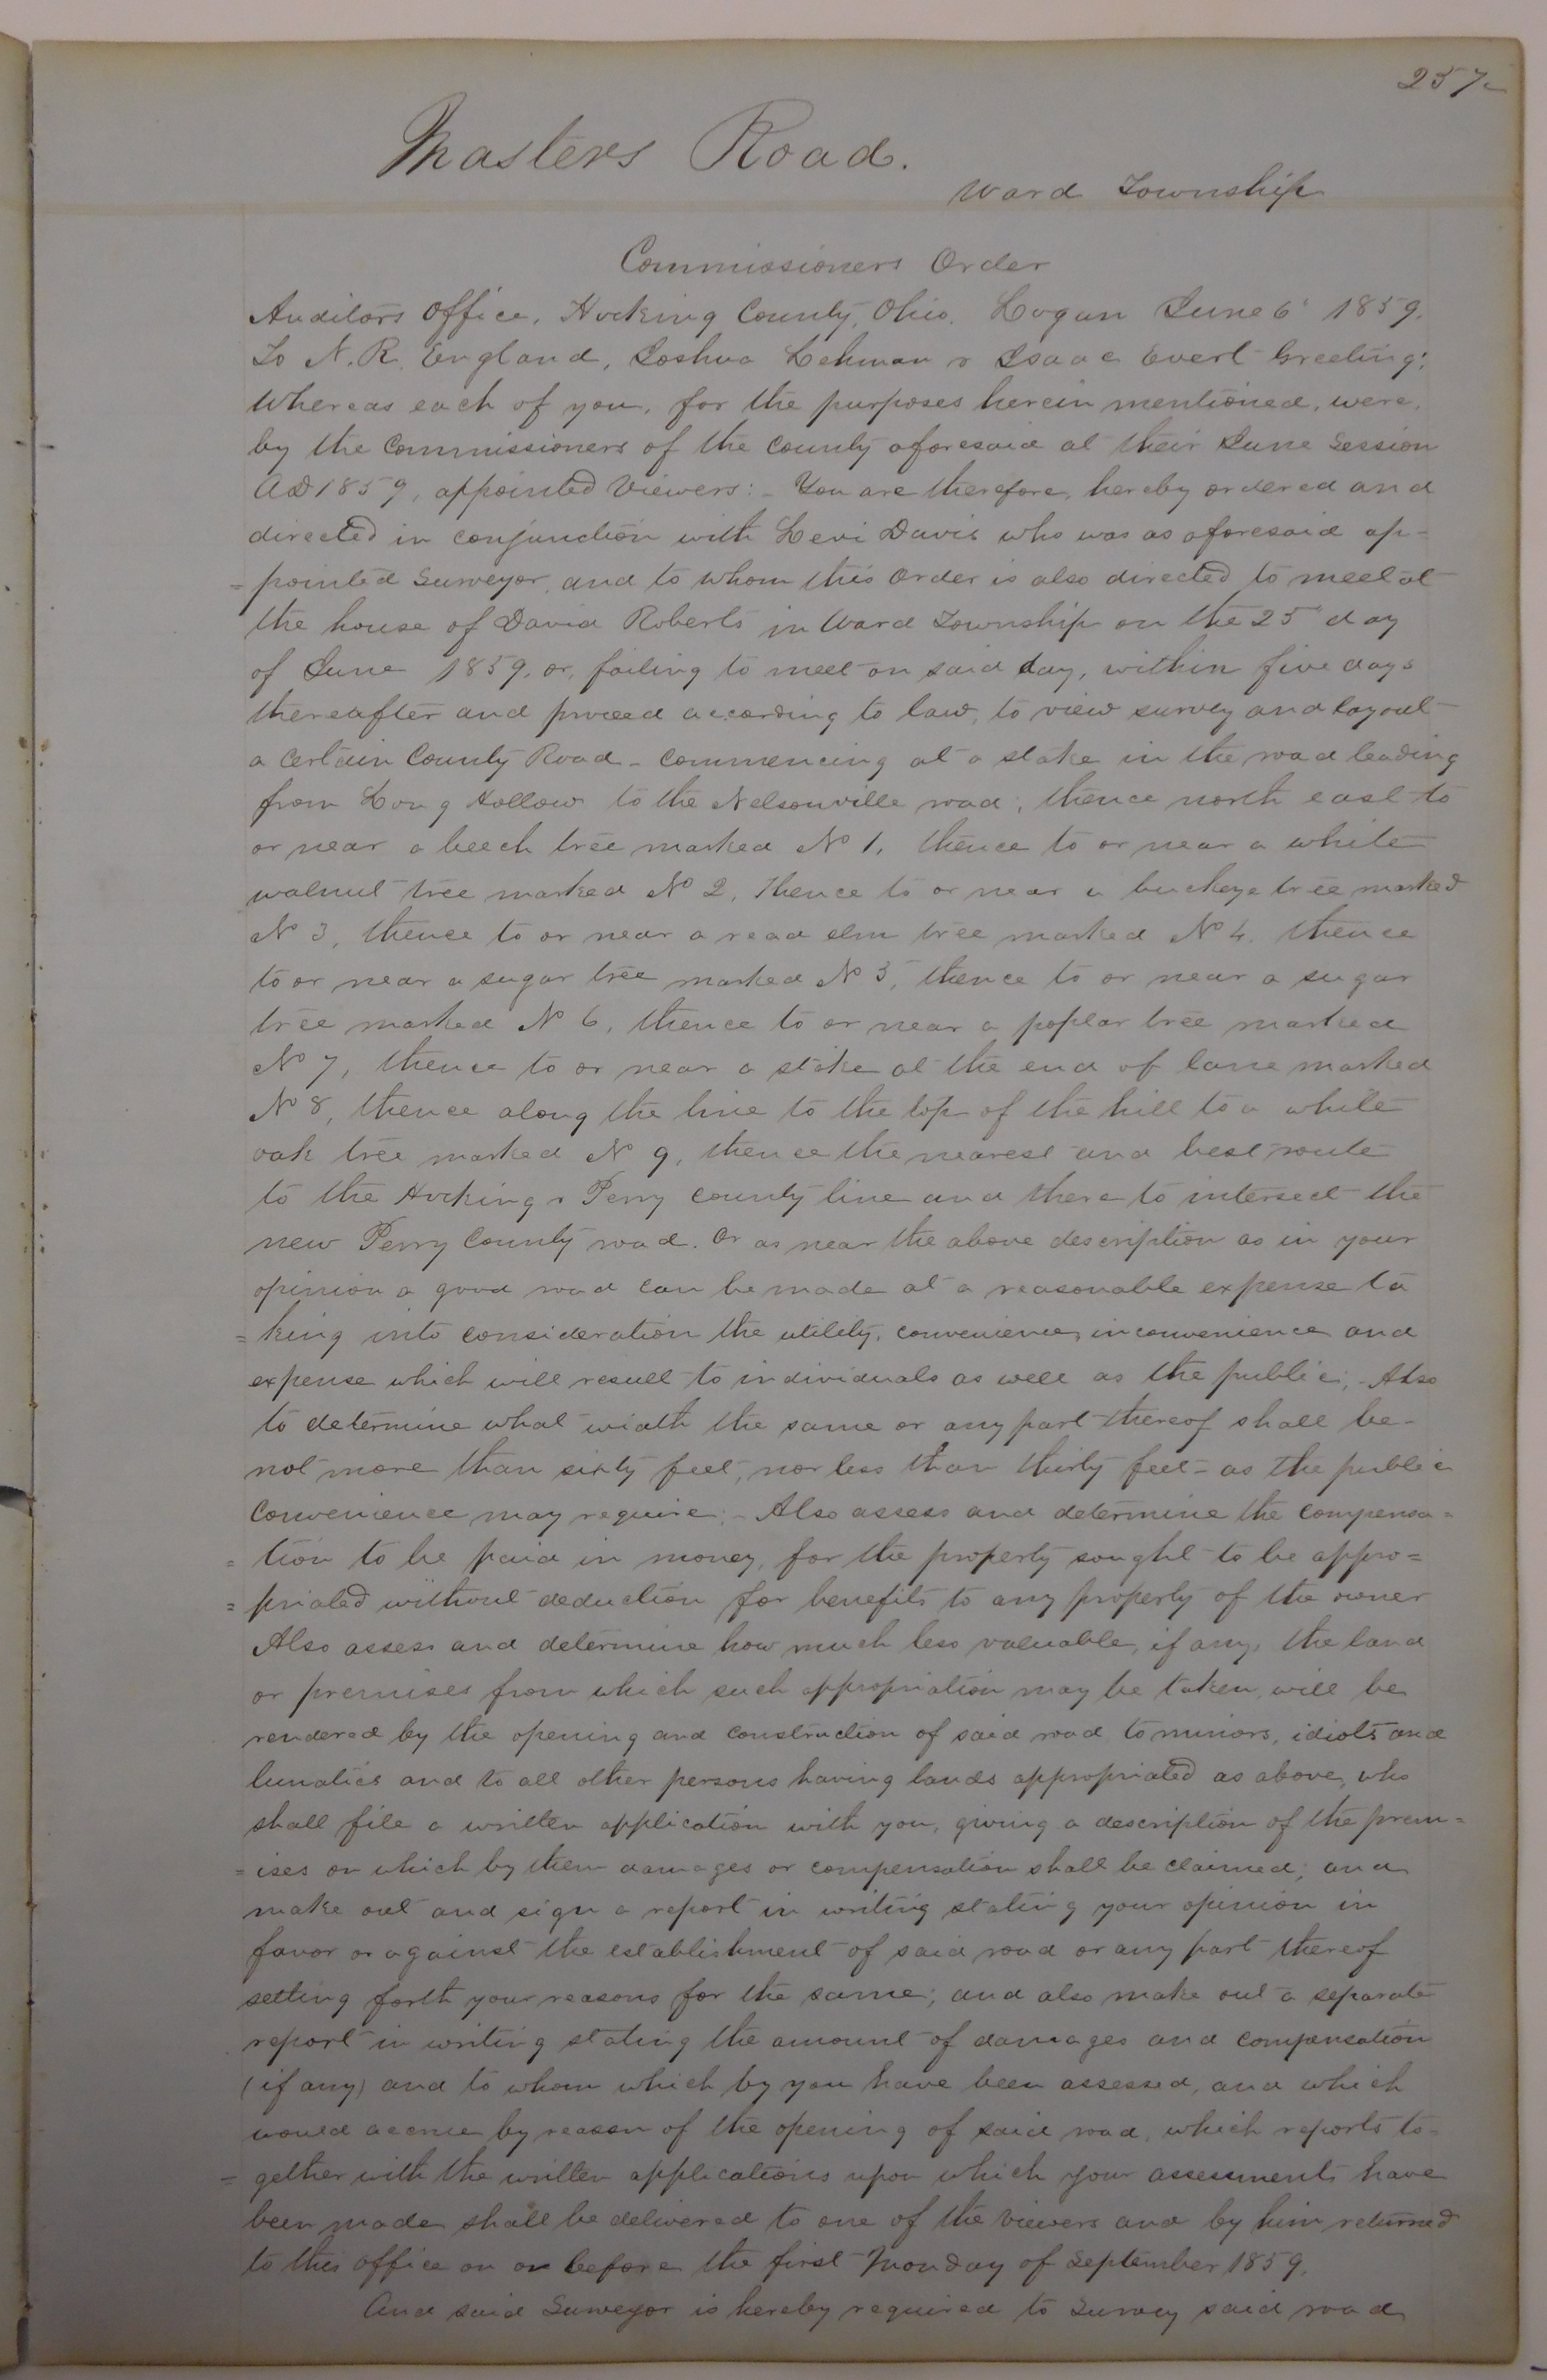 257-
Masters Road.
Ward Township
Commissioners Order
Auditors Office, Hocking County, Ohio. Logan June 6' 1859.
To N. R. England, Joshua Lehman & Isaac Evert Greeting:
Whereas each of you, for the purposes herein mentioned, were,
by the Commissioners of the County aforesaid at their June Session
AD 1859, appointed Viewers:- You are therefore, hereby ordered and
directed in conjunction with Levi Davis who was as aforesaid ap-
=pointed Surveyor, and to whom this Order is also directed to meet at
the house of David Roberts in Ward Township on the 25" day
of June 1859. or, failing to meet on said day, within five days
thereafter and proceed according to law, to view survey and layout
a certain County Road - commencing at a stake in the road leading
from Long Hollow to the Nelsonville road; thence north east to
or near a beech tree marked No 1, thence to or near a white
walnut tree marked No 2, thence to or near a buckeye tree marked
No 3, thence to or near a read elm tree marked No 4. thence
to or near a sugar tree marked No 5, thence to or near a sugar
tree marked No 6, thence to or near a poplar tree marked
No 7, thence to or near a stake at the end of lane marked
No 8, thence along the line to the top of the hill to a white
oak tree marked No 9, thence the nearest and best route
to the Hocking & Perry County line and there to intersect the
new Perry County road. Or as near the above description as in your
opinion a good road can be made at a reasonable expense ta
=king into consideration the utility, convenience, inconvenience and
expense which will result to individuals as well as the public; - Also
to determine what width the same or any part thereof shall be-
not more than sixty feet, nor less than thirty feet - as the public
Convenience may require; - Also assess and determine the compensa=
=tion to be paid in money, for the property sought to be appro=
=priated without deduction for benefits to any property of the owner
Also assess and determine how much less valuable, if any, the land
or premises from which such appropriation may be taken, will be
rendered by the opening and construction of said road to minors, idiots and
lunatics and to all other persons having lands appropriated as above, who
shall file a written application with you, giving a description of the prem=
=ises on which by them damages or compensation shall be claimed; and
make out and sign a report in writing stating your opinion in
favor or against the establishment of said road or any part thereof
setting forth your reasons for the same; and also make out a separate
report in writing stating the amount of damages and compensation
(if any) and to whom which by you have been assessed, and which
would accrue by reason of the opening of said road, which reports to-
=gether with the written applications upon which your assessments have
been made shall be delivered to one of the Viewers and by him returned
to this office on or before the first Monday of September 1859.
And said Surveyor is hereby required to Survey said road